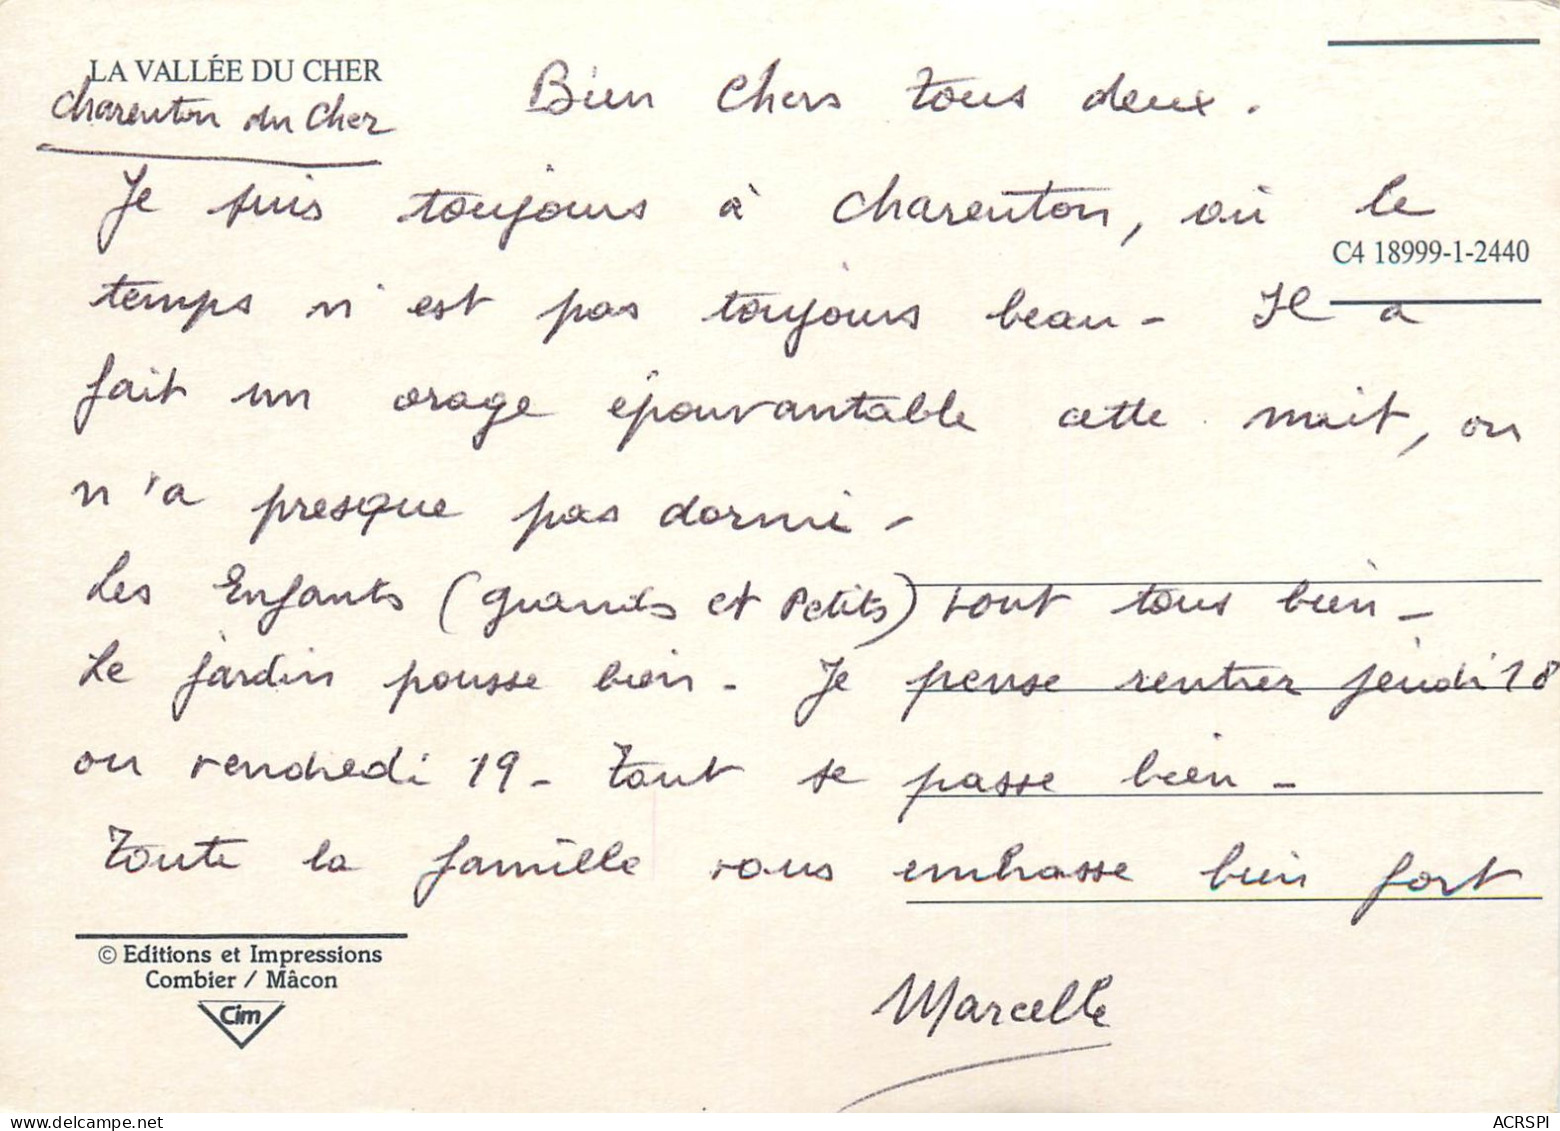 LA VALLÉE DU CHER
Charenton du Cher
Bien Chers tous deux.
Je suis toujours à Charenton, où le
C4 18999-1-2440
temps n'est pas toujours beau - Il a
fait un orage épouvantable cette nuit, on
n'a presque pas dormi -
Les Enfants (grands et Petits) sont tous bien -
Le jardin pousse bien - Je pense rentrer jeudi 18
ou vendredi 19 - Tout se passe bien -
Toute la famille vous embrasse bien fort
© Editions et Impressions
Combier / Mâcon
Cim
Marcelle
ACRSPI